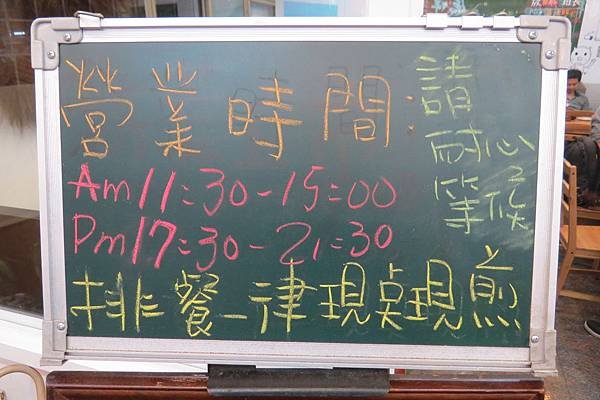 營業時間:
Am11:30-15:00
Pm17:30-21:30
排餐一律現點現煎
請
耐心
等候